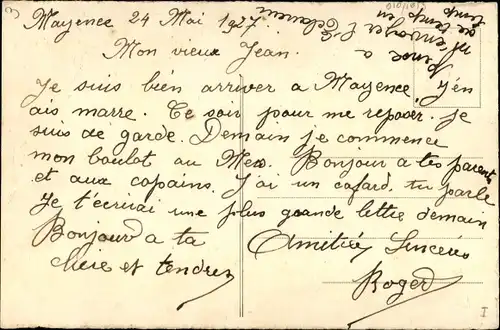 Mayence 24 Mai 1927.
Mon vieux Jean.
Je suis bien arriver a Mayence, j'en
ais marre. Ce soir pour me reposer je
suis de garde. Demain je commence
mon boulot au Mess. Bonjour a tes parent
et aux copains. J'ai un cafard. tu parle
Je t'écrirai une plus grande lettre demain
Bonjour a ta
chère et tendre
Amitiés Sincères
Roger
pense a
m'envoyer l'
de temp en
temp
I